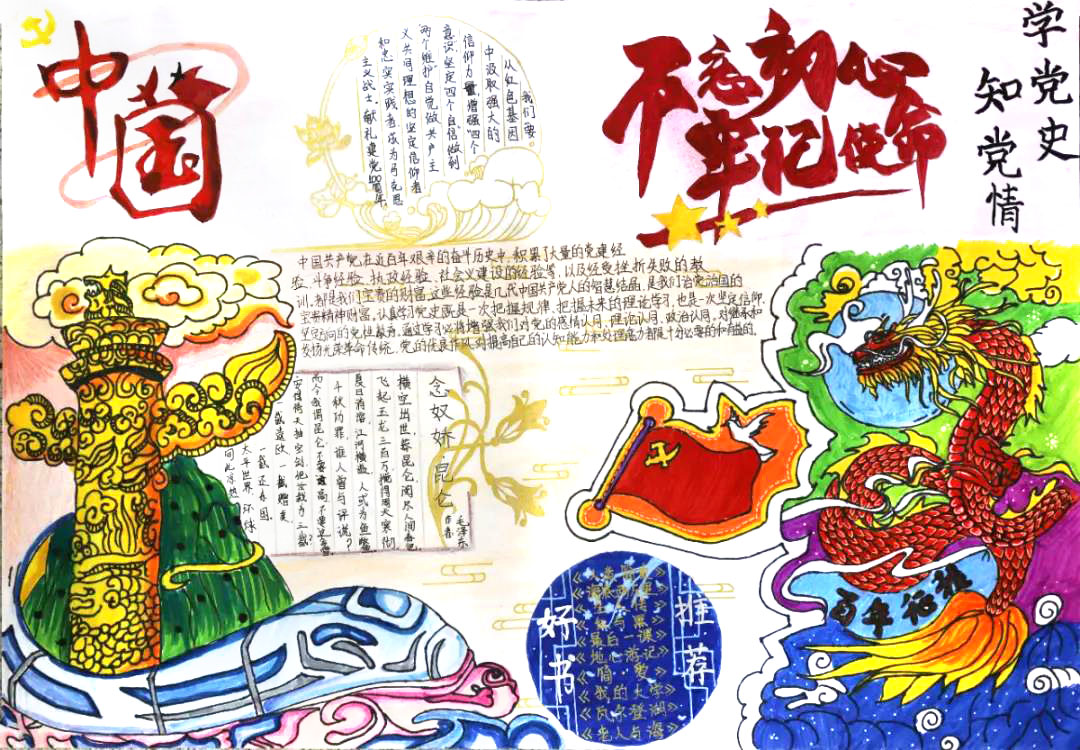 中国
不忘初心
牢记使命
学党史
知党情
我们要
从红色基因
中汲取强大的
信仰力量,增强"四个
意识",坚定"四个自信",做到
"两个维护",自觉做共产主
义共同理想的坚定信仰者
和忠实实践者,成为马克思
主义战士,献礼建党100周年
中国共产党,在近百年艰辛的奋斗历史中,积累了大量的党建经
验、斗争经验、执政经验、社会义建设的经验等,以及经受挫折失败的教
训,都是我们宝贵的财富,这些经验是几代中国共产党人的智慧结晶,是我们治党治国的
宝贵精神财富。认真学习党史既是一次把握规律、把握未来的理论学习,也是一次坚定信仰、
坚定方向的党性教育。通过学习必将增强我们对党的感情认同、理论认同、政治认同,对继承和
发扬光荣革命传统,党的优良作风,对提高自己的认知能力和处理能力都是十分必要的和有益的。
念奴娇 昆仑
毛泽东
横空出世,莽昆仑,阅尽人间春色。
飞起玉龙三百万,搅得周天寒彻。
夏日消溶,江河横溢,人或为鱼鳖。
千秋功罪,谁人曾与评说?
而今我谓昆仑:不要这高,不要这多雪。
安得倚天抽宝剑,把汝裁为三截?
一截遗欧,一截赠美,
一截还东国。
太平世界,环球
同此凉热。
好书
推荐
《最后一课》
《地心游记》
《简·爱》
《我的大学》
《瓦尔登湖》
《老人与海》
百年征程